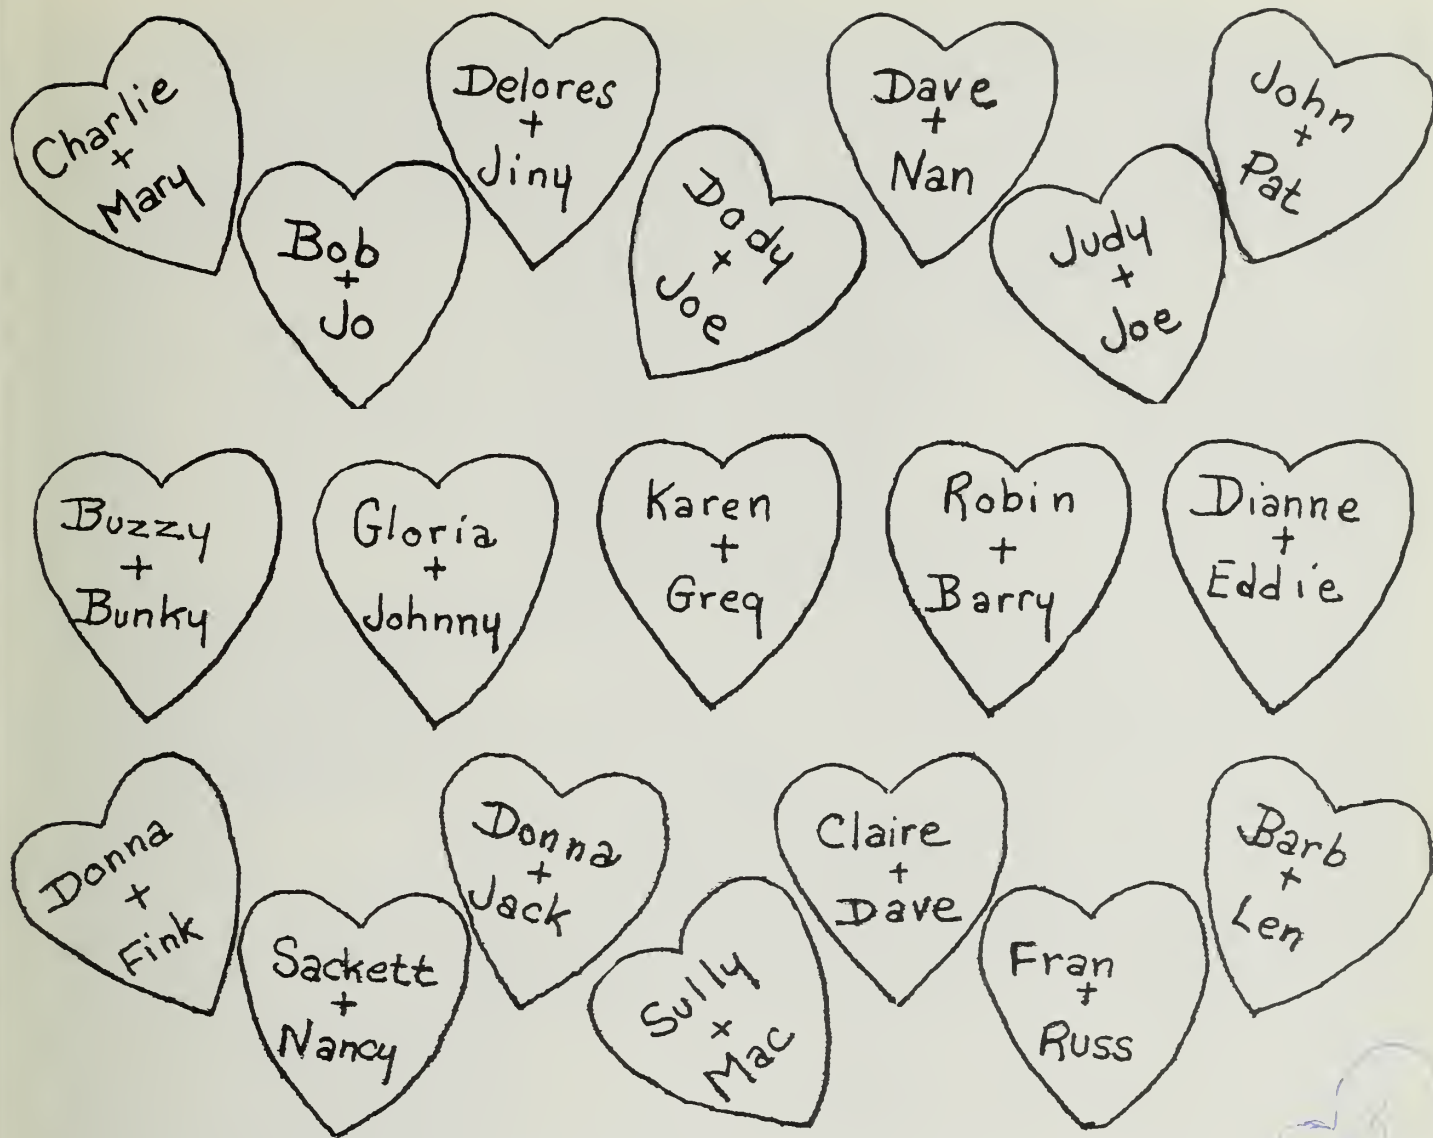 Charlie
+
Mary
Bob
+
Jo
Delores
+
Jiny
Dody
+
Joe
Dave
+
Nan
Judy
+
Joe
John
+
Pat
Buzzy
+
Bunky
Gloria
+
Johnny
Karen
+
Greg
Robin
+
Barry
Dianne
+
Eddie
Donna
+
Fink
Sackett
+
Nancy
Donna
+
Jack
Sully
+
Mac
Claire
+
Dave
Fran
+
Russ
Barb
+
Len